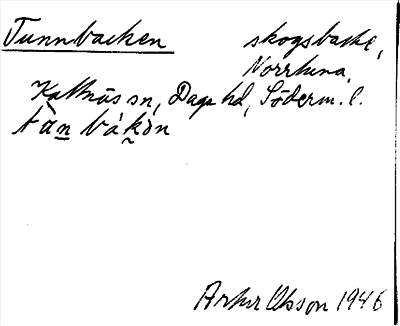 Tunnbacken skogsbacke,
Norrhena,
Kattnäs sn, Daga hd, Söderm. l.
tàn bákən
Artur Olsson 1946